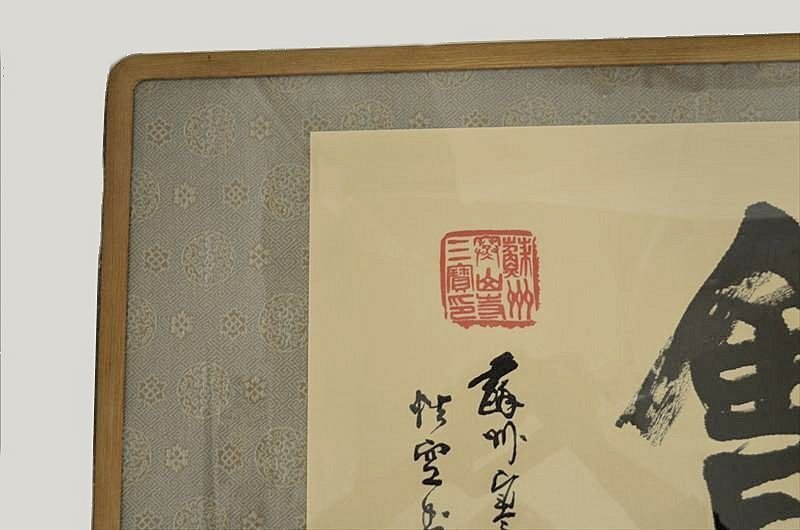 會
蘇州
寒山寺
三寶印
蘇州寒
性空